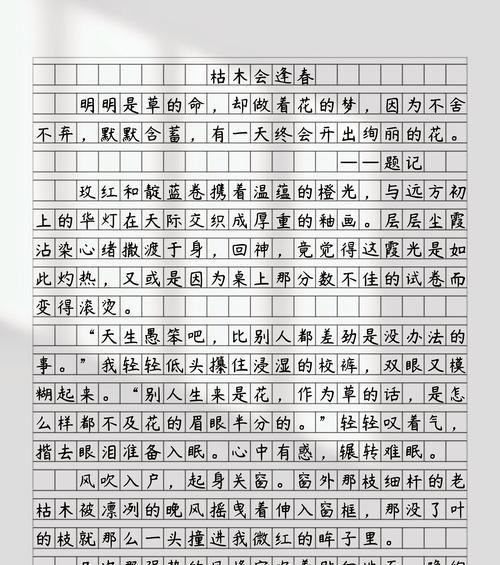 枯木会逢春
明明是草的命，却做着花的梦，因为不舍
不弃，默默含蓄，有一天终会开出绚丽的花。
——题记
玫红和靛蓝卷携着温蕴的橙光，与远方初
上的华灯在天际交织成厚重的釉画。层层尘霞
沾染心绪撒渡于身，回神，竟觉得这霞光是如
此灼热，又或是因为桌上那分数不佳的试卷而
变得滚烫。
“天生愚笨吧，比别人都差劲是没办法的
事。”我轻轻低头攥住浸湿的校裤，双眼又模
糊起来。“别人生来是花，作为草的话，是怎
么样都不及花的眉眼半分的。”轻轻叹着气，
揩去眼泪准备入眠。心中有惑，辗转难眠。
风吹入户，起身关窗。窗外那枝细杆的老
枯木被凛冽的晚风摇曳着伸入窗框，那没了叶
的枝就那么一头撞进我微红的眸子里。